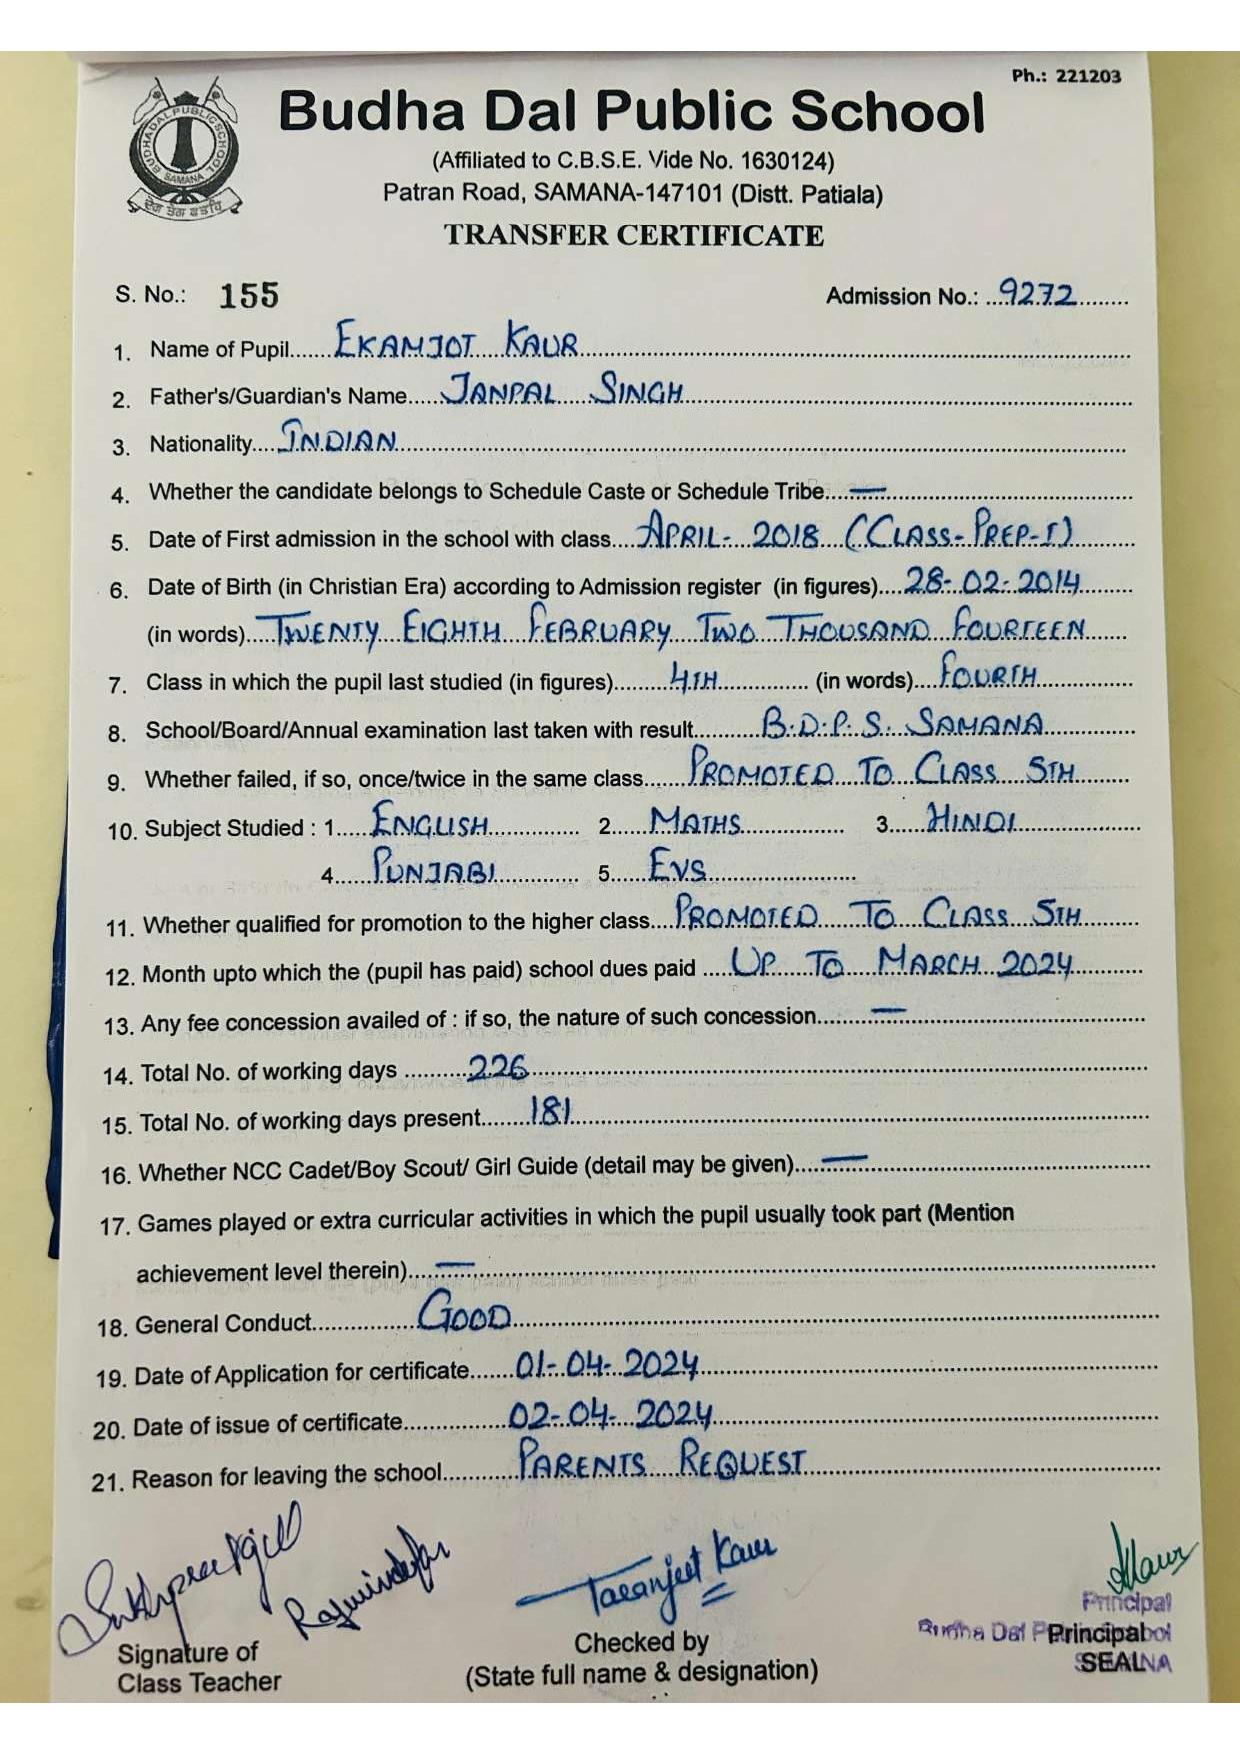 Ph.: 221203
BUDHA DAL PUBLIC SCHOOL
SAMANA
Budha Dal Public School
(Affiliated to C.B.S.E. Vide No. 1630124)
Patran Road, SAMANA-147101 (Distt. Patiala)
TRANSFER CERTIFICATE
S. No.: 155 Admission No.: 9272
1. Name of Pupil EKAMJOT KAUR
2. Father's/Guardian's Name JANPAL SINGH
3. Nationality INDIAN
4. Whether the candidate belongs to Schedule Caste or Schedule Tribe —
5. Date of First admission in the school with class APRIL- 2018 (CLASS-PREP-I)
6. Date of Birth (in Christian Era) according to Admission register (in figures) 28-02-2014
(in words) TWENTY EIGHTH FEBRUARY TWO THOUSAND FOURTEEN
7. Class in which the pupil last studied (in figures) 4TH (in words) FOURTH
8. School/Board/Annual examination last taken with result B.D.P.S. SAMANA
9. Whether failed, if so, once/twice in the same class PROMOTED TO CLASS 5TH
10. Subject Studied : 1. ENGLISH 2. MATHS 3. HINDI
4. PUNJABI 5. EVS
11. Whether qualified for promotion to the higher class PROMOTED TO CLASS 5TH
12. Month upto which the (pupil has paid) school dues paid UP TO MARCH 2024
13. Any fee concession availed of : if so, the nature of such concession —
14. Total No. of working days 226
15. Total No. of working days present 181
16. Whether NCC Cadet/Boy Scout/ Girl Guide (detail may be given) —
17. Games played or extra curricular activities in which the pupil usually took part (Mention
achievement level therein) —
18. General Conduct GOOD
19. Date of Application for certificate 01-04-2024
20. Date of issue of certificate 02-04-2024
21. Reason for leaving the school PARENTS REQUEST
Taranjeet Kaur
Principal
Budha Dal
Signature of Checked by Principal
Class Teacher (State full name & designation) SEAL